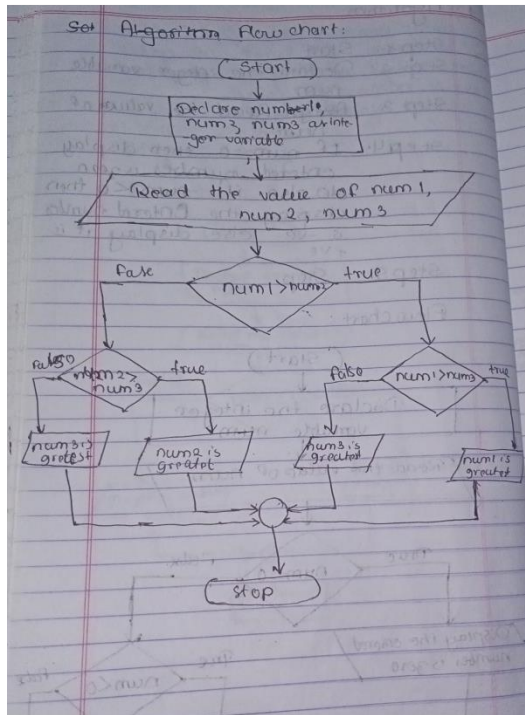 Sol Algorithm Flow chart:
(Start)
Declare number1,
num2, num3 as inte
-ger variable
Read the value of num1,
num2, num3
false
num1>num2
true
false
num2>
num3
true
false
num1>num3
true
num3 is
gretest
num2 is
greatet
num3 is
greatest
num1 is
greatet
stop